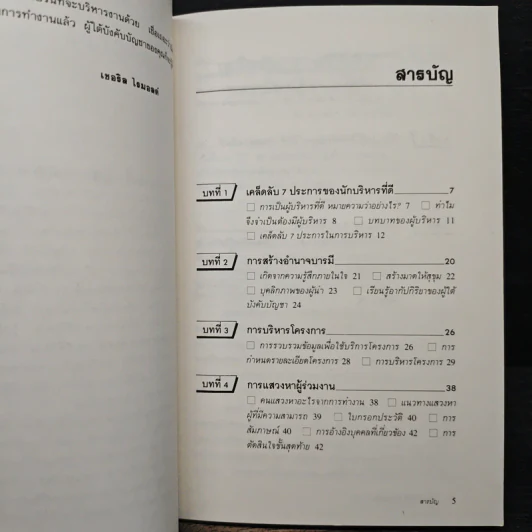 การทำงานแล้ว ผู้ใต้บังคับบัญชาของคุณก็
เชอริล ไรมอลด์
สารบัญ
บทที่ 1 เคล็ดลับ 7 ประการของนักบริหารที่ดี 7
□ การเป็นผู้บริหารที่ดี หมายความว่าอย่างไร? 7 □ ทำไม
จึงจำเป็นต้องมีผู้บริหาร 8 □ บทบาทของผู้บริหาร 11
□ เคล็ดลับ 7 ประการในการบริหาร 12
บทที่ 2 การสร้างอำนาจบารมี 20
□ เกิดจากความรู้สึกภายในใจ 21 □ สร้างมาดให้สุขุม 22
□ บุคลิกภาพของผู้นำ 23 □ เรียนรู้อากัปกิริยาของผู้ใต้
บังคับบัญชา 24
บทที่ 3 การบริหารโครงการ 26
□ การรวบรวมข้อมูลเพื่อใช้บริการโครงการ 26 □ การ
กำหนดรายละเอียดโครงการ 28 □ การบริหารโครงการ 29
บทที่ 4 การแสวงหาผู้ร่วมงาน 38
□ คนแสวงหาอะไรจากการทำงาน 38 □ แนวทางแสวงหา
ผู้ที่มีความสามารถ 39 □ ใบกรอกประวัติ 40 □ การ
สัมภาษณ์ 40 □ การอ้างอิงบุคคลที่เกี่ยวข้อง 42 □ การ
ตัดสินใจขั้นสุดท้าย 42
สารบัญ 5